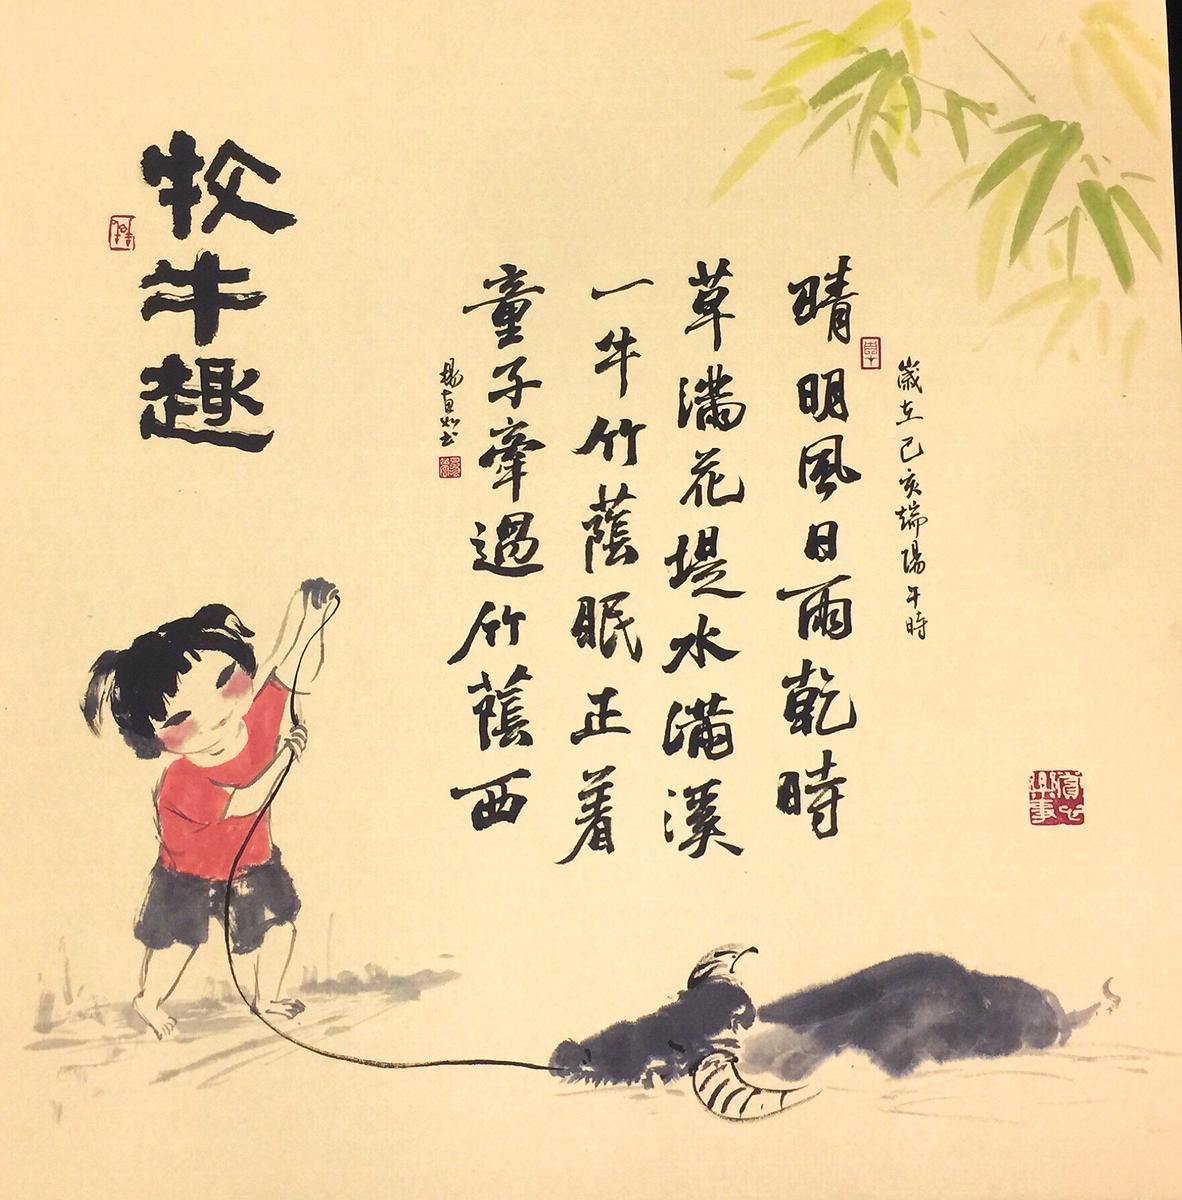 歲在己亥端陽午時
晴明風日雨乾時
草滿花堤水滿溪
一牛竹蔭眠正着
童子牽過竹蔭西
楊直如書
牧牛趣